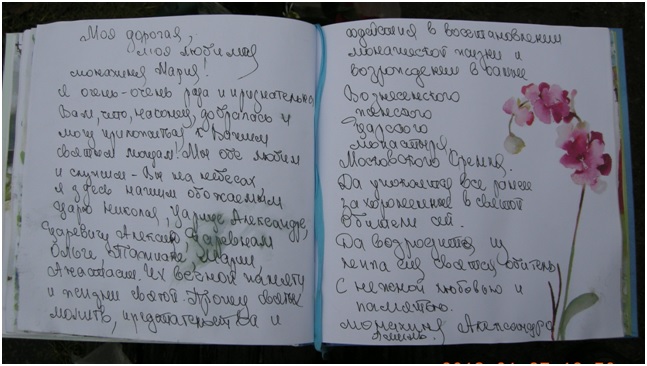 Моя дорогая,
моя любимая
монахиня Мария!
Я очень-очень рада и признательна
Вам, что, наконец, добралась и
могу приложиться к Вашим
святым мощам! Мы обе любим
и служим - Вы на небесах
я здесь нашим обожаемым
Царю Николаю, Царице Александре,
Царевичу Алексию Царевнам
Ольге Татиане Марии
Анастасии. Их вечной памяти
и жизни святой Прошу святых
молитв, предстательства и
содействия в восстановлении
монашеской жизни и
возрождении в
Вознесенского
женского
Царского
монастыря
Московского Кремля.
Да упокоятся все ранее
захороненные в святой
обители сей.
Да возродится из
пепла сия святая обитель
С нежной любовью и
памятью.
монахиня Александра
Аминь.